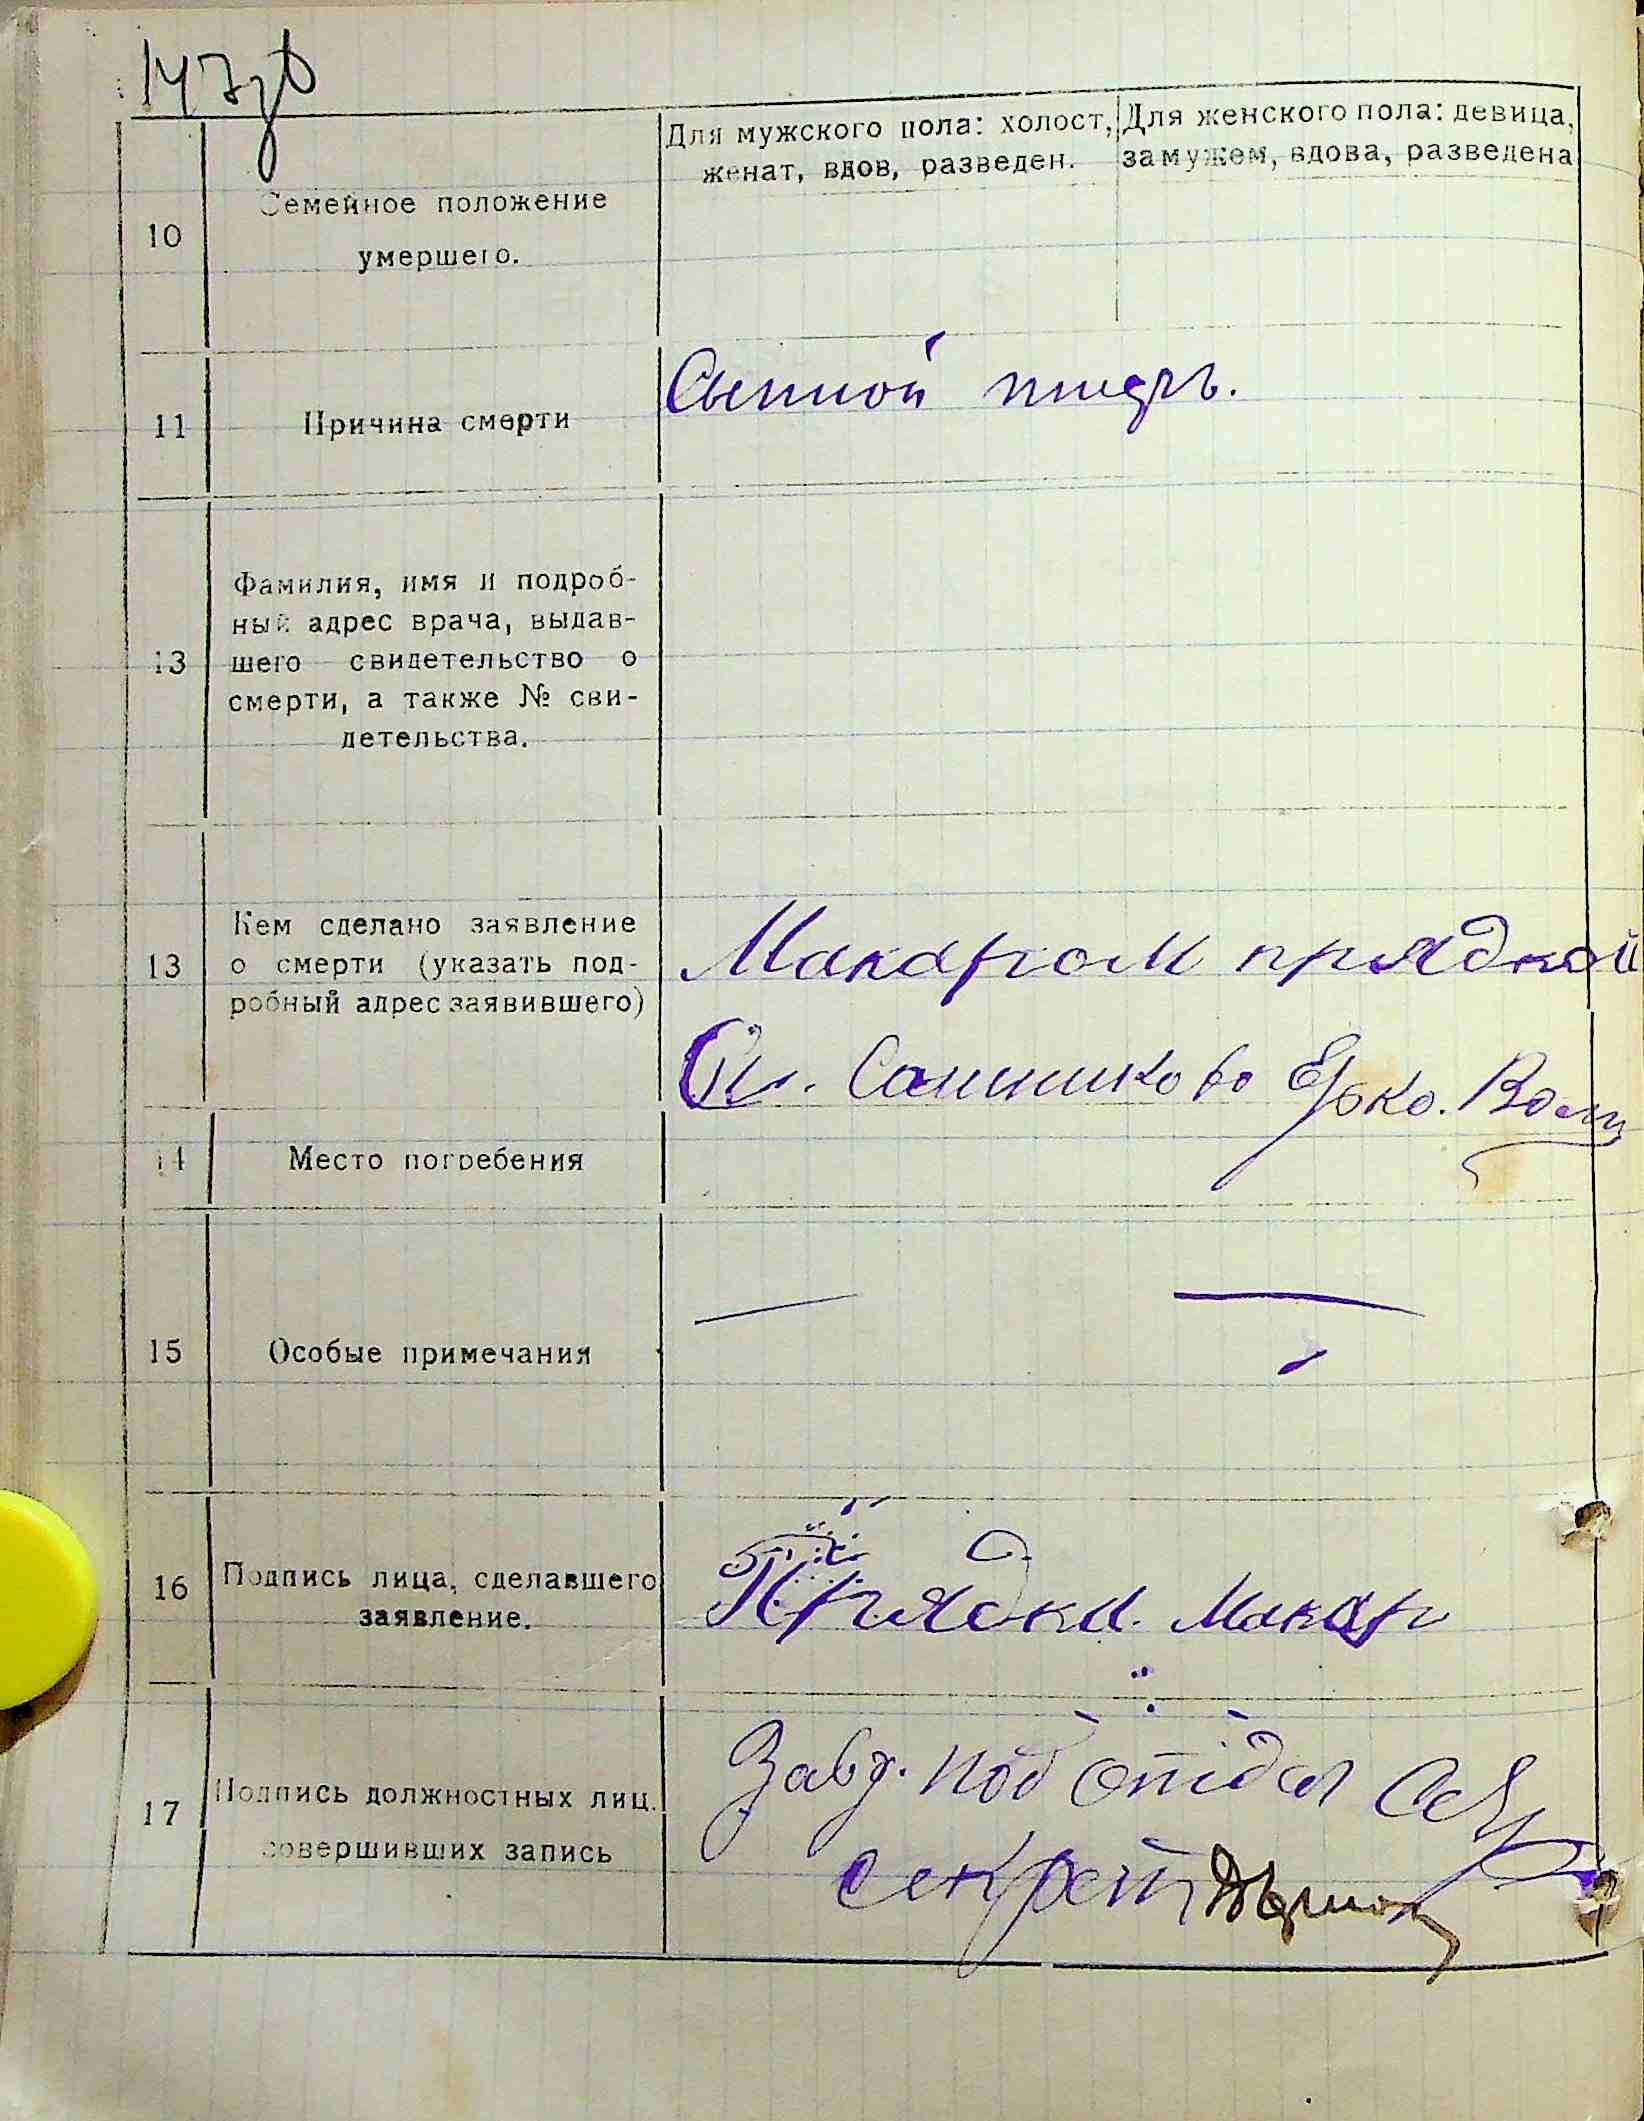 147
Для мужского пола: холост,
женат, вдов, разведен.
Для женского пола: девица,
замужем, вдова, разведена
10
Семейное положение
умершего.
11
Причина смерти
Сыпной тифъ.
13
Фамилия, имя и подроб-
ный адрес врача, выдав-
шего свидетельство о
смерти, а также № сви-
детельства.
13
Кем сделано заявление
о смерти (указать под-
робный адрес заявившего)
Макаром прядкой
Санниково
14
Место погребения
15
Особые примечания
16
Подпись лица, сделавшего
заявление.
Прядка. Макар
17
Подпись должностных лиц.
совершивших запись
Завд. под отдел
секрет